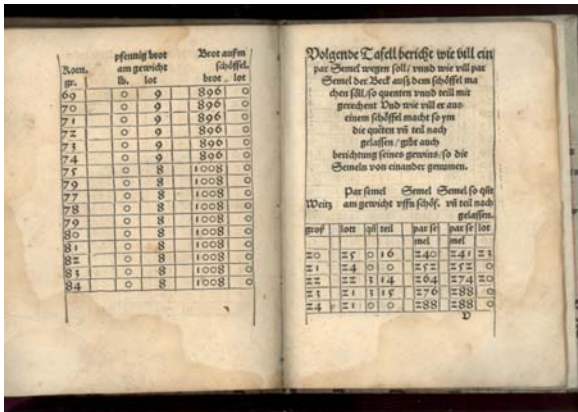 pfennig brot Brot auffm
Korn. am gewicht schöffel.
gr. lb. lot brot . lot
69 0 9 896 0
70 0 9 896 0
71 0 9 896 0
7z 0 9 896 0
73 0 9 896 0
74 0 9 896 0
75 0 8 1008 0
79 0 8 1008 0
77 0 8 1008 0
78 0 8 1008 0
79 0 8 1008 0
80 0 8 1008 0
81 0 8 1008 0
8z 0 8 1008 0
83 0 8 1008 0
84 0 8 1008 0
Volgende Tafell bericht wie vill ein
par Semel wegen soll/ vnnd wie vill par
Semel der Beck auß dem schöffel ma
chen söll/so quenten vnnd teill mit
gerechent Vnd wie vill er aus
einem schöffel macht so ym
die quiten vñ teil nach
gelassen/ gibt auch
berichtung seines gewins/so die
Semeln von einander genumen.
Par semel Semel Semel so qūt
Weitz am gewicht vffn schöf. vñ teil nach
gelassen.
groß lott qū teil par se par se lot
mel mel
z0 z5 0 16 z40 z41 z3
z1 z4 0 0 z5z z5z 0
zz zz 3 14 z64 z74 z0
z3 z1 3 15 z76 z88 0
z4 z1 0 0 z88 z88 0